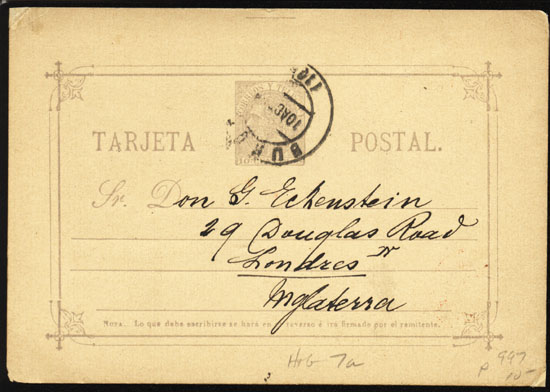 TARJETA POSTAL.
Sr. Don G. Eckenstein
29 Douglas Road
Londres N
Inglaterra
NOTA. Lo que deba escribirse se hará en el reverso é irá firmado por el remitente.
H&G 7a
997
P 10-